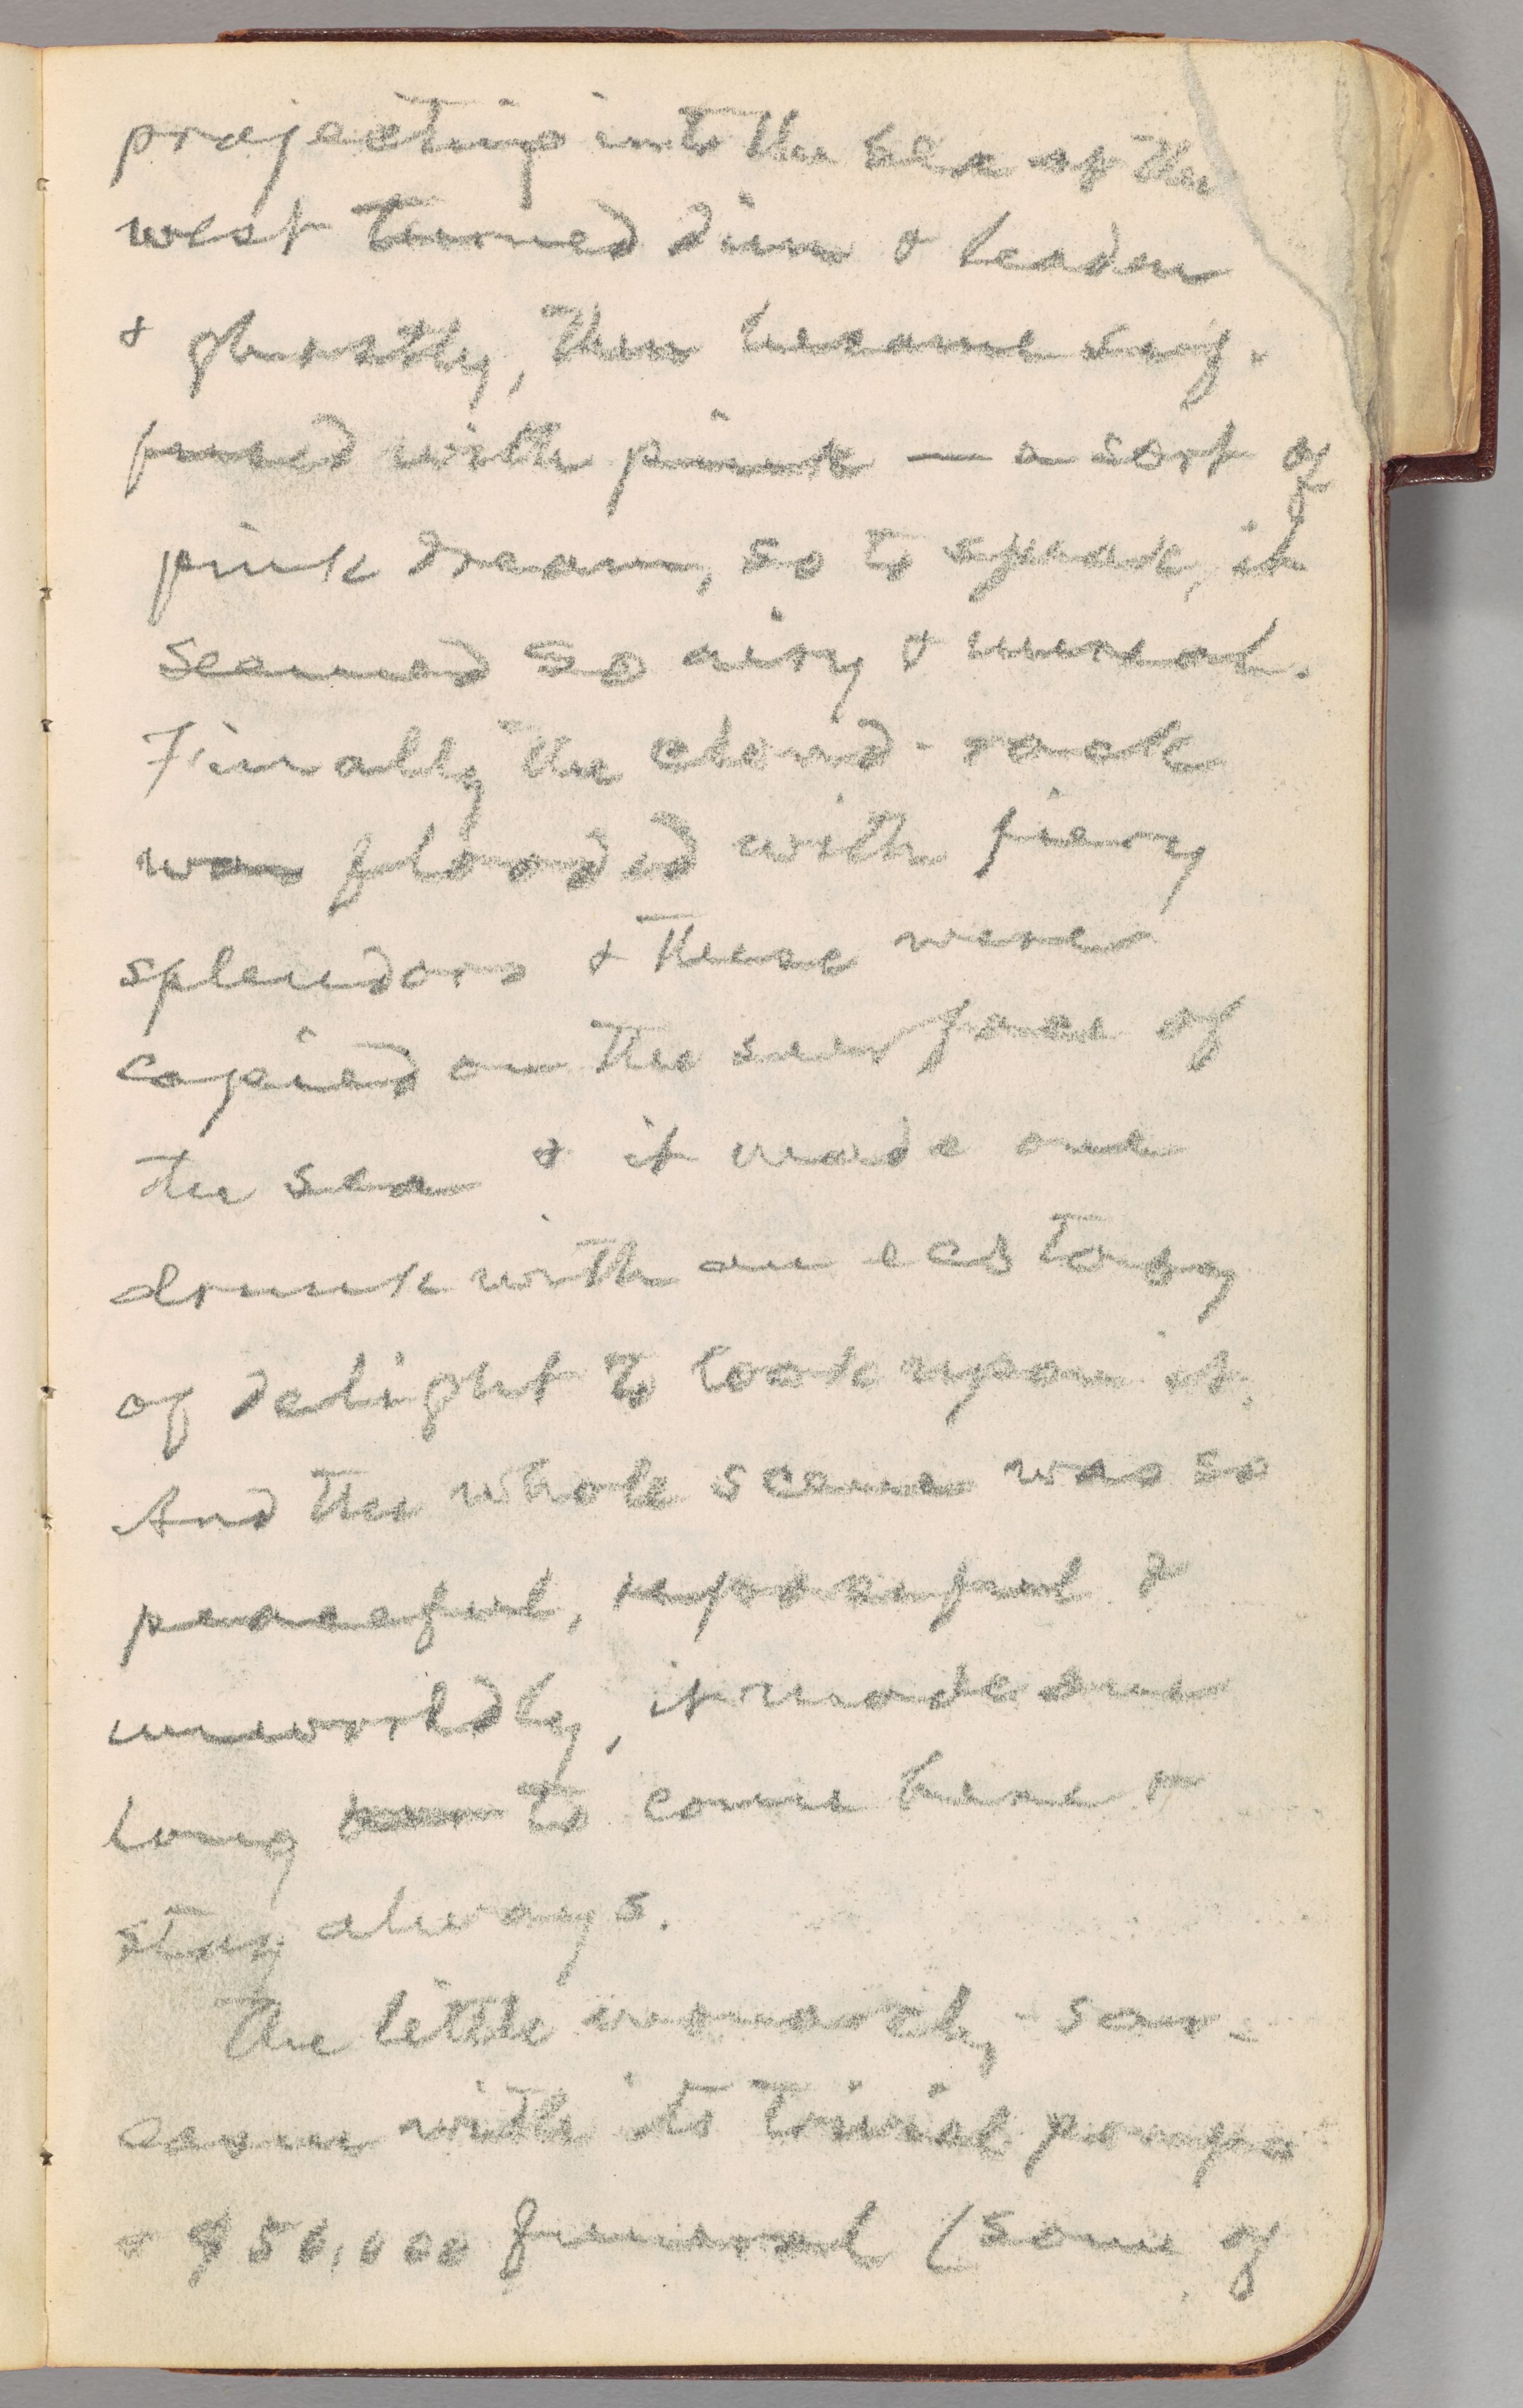 projecting into the sea at the
west turned dim & leaden
& ghostly, then became suf-
fused with pink — a sort of
pink dream, so to speak, it
seemed so airy & unreal.
Finally the cloud-rack
was flooded with fiery
splendors & these were
copied on the surface of
the sea & it made one
drunk with an ecstasy
of delight to look upon it.
And the whole scene was so
peaceful, reposeful &
unworldly, it made one
long to come here &
stay always.
The little monarchy-sar-
casm with its trivial pomps
& $50,000 funeral (some of